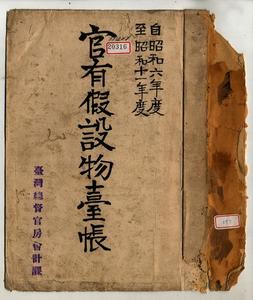 自昭和六年度
至昭和十一年度
20316
官有假設物臺帳
臺灣總督官房會計課